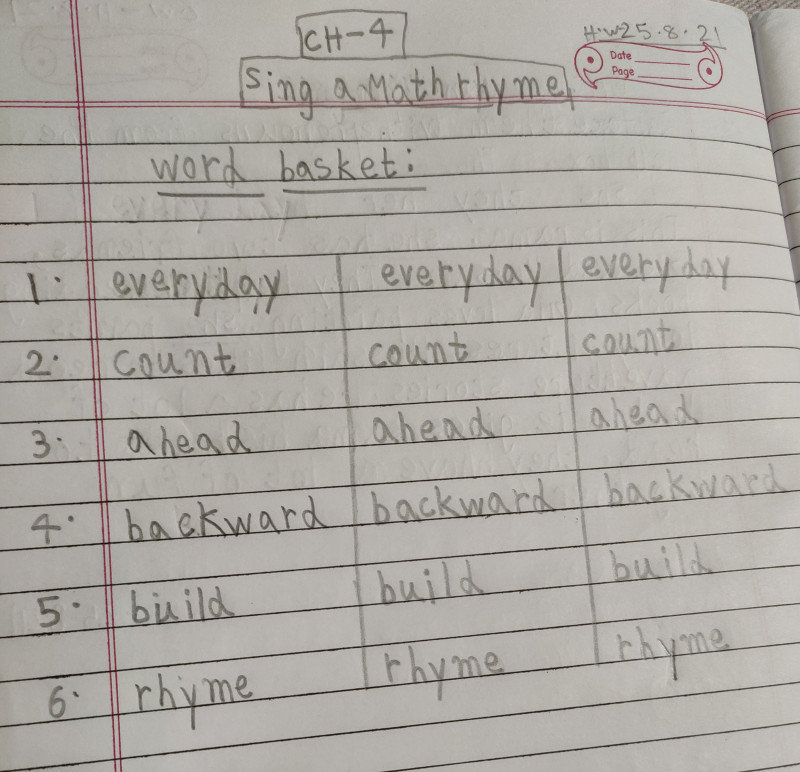 CH-4
H.W 25.8.21
Date
Page
Sing a Math rhyme
word basket:
1. everyday everyday everyday
2. count count count
3. ahead ahead ahead
4. backward backward backward
5. build build build
6. rhyme rhyme rhyme